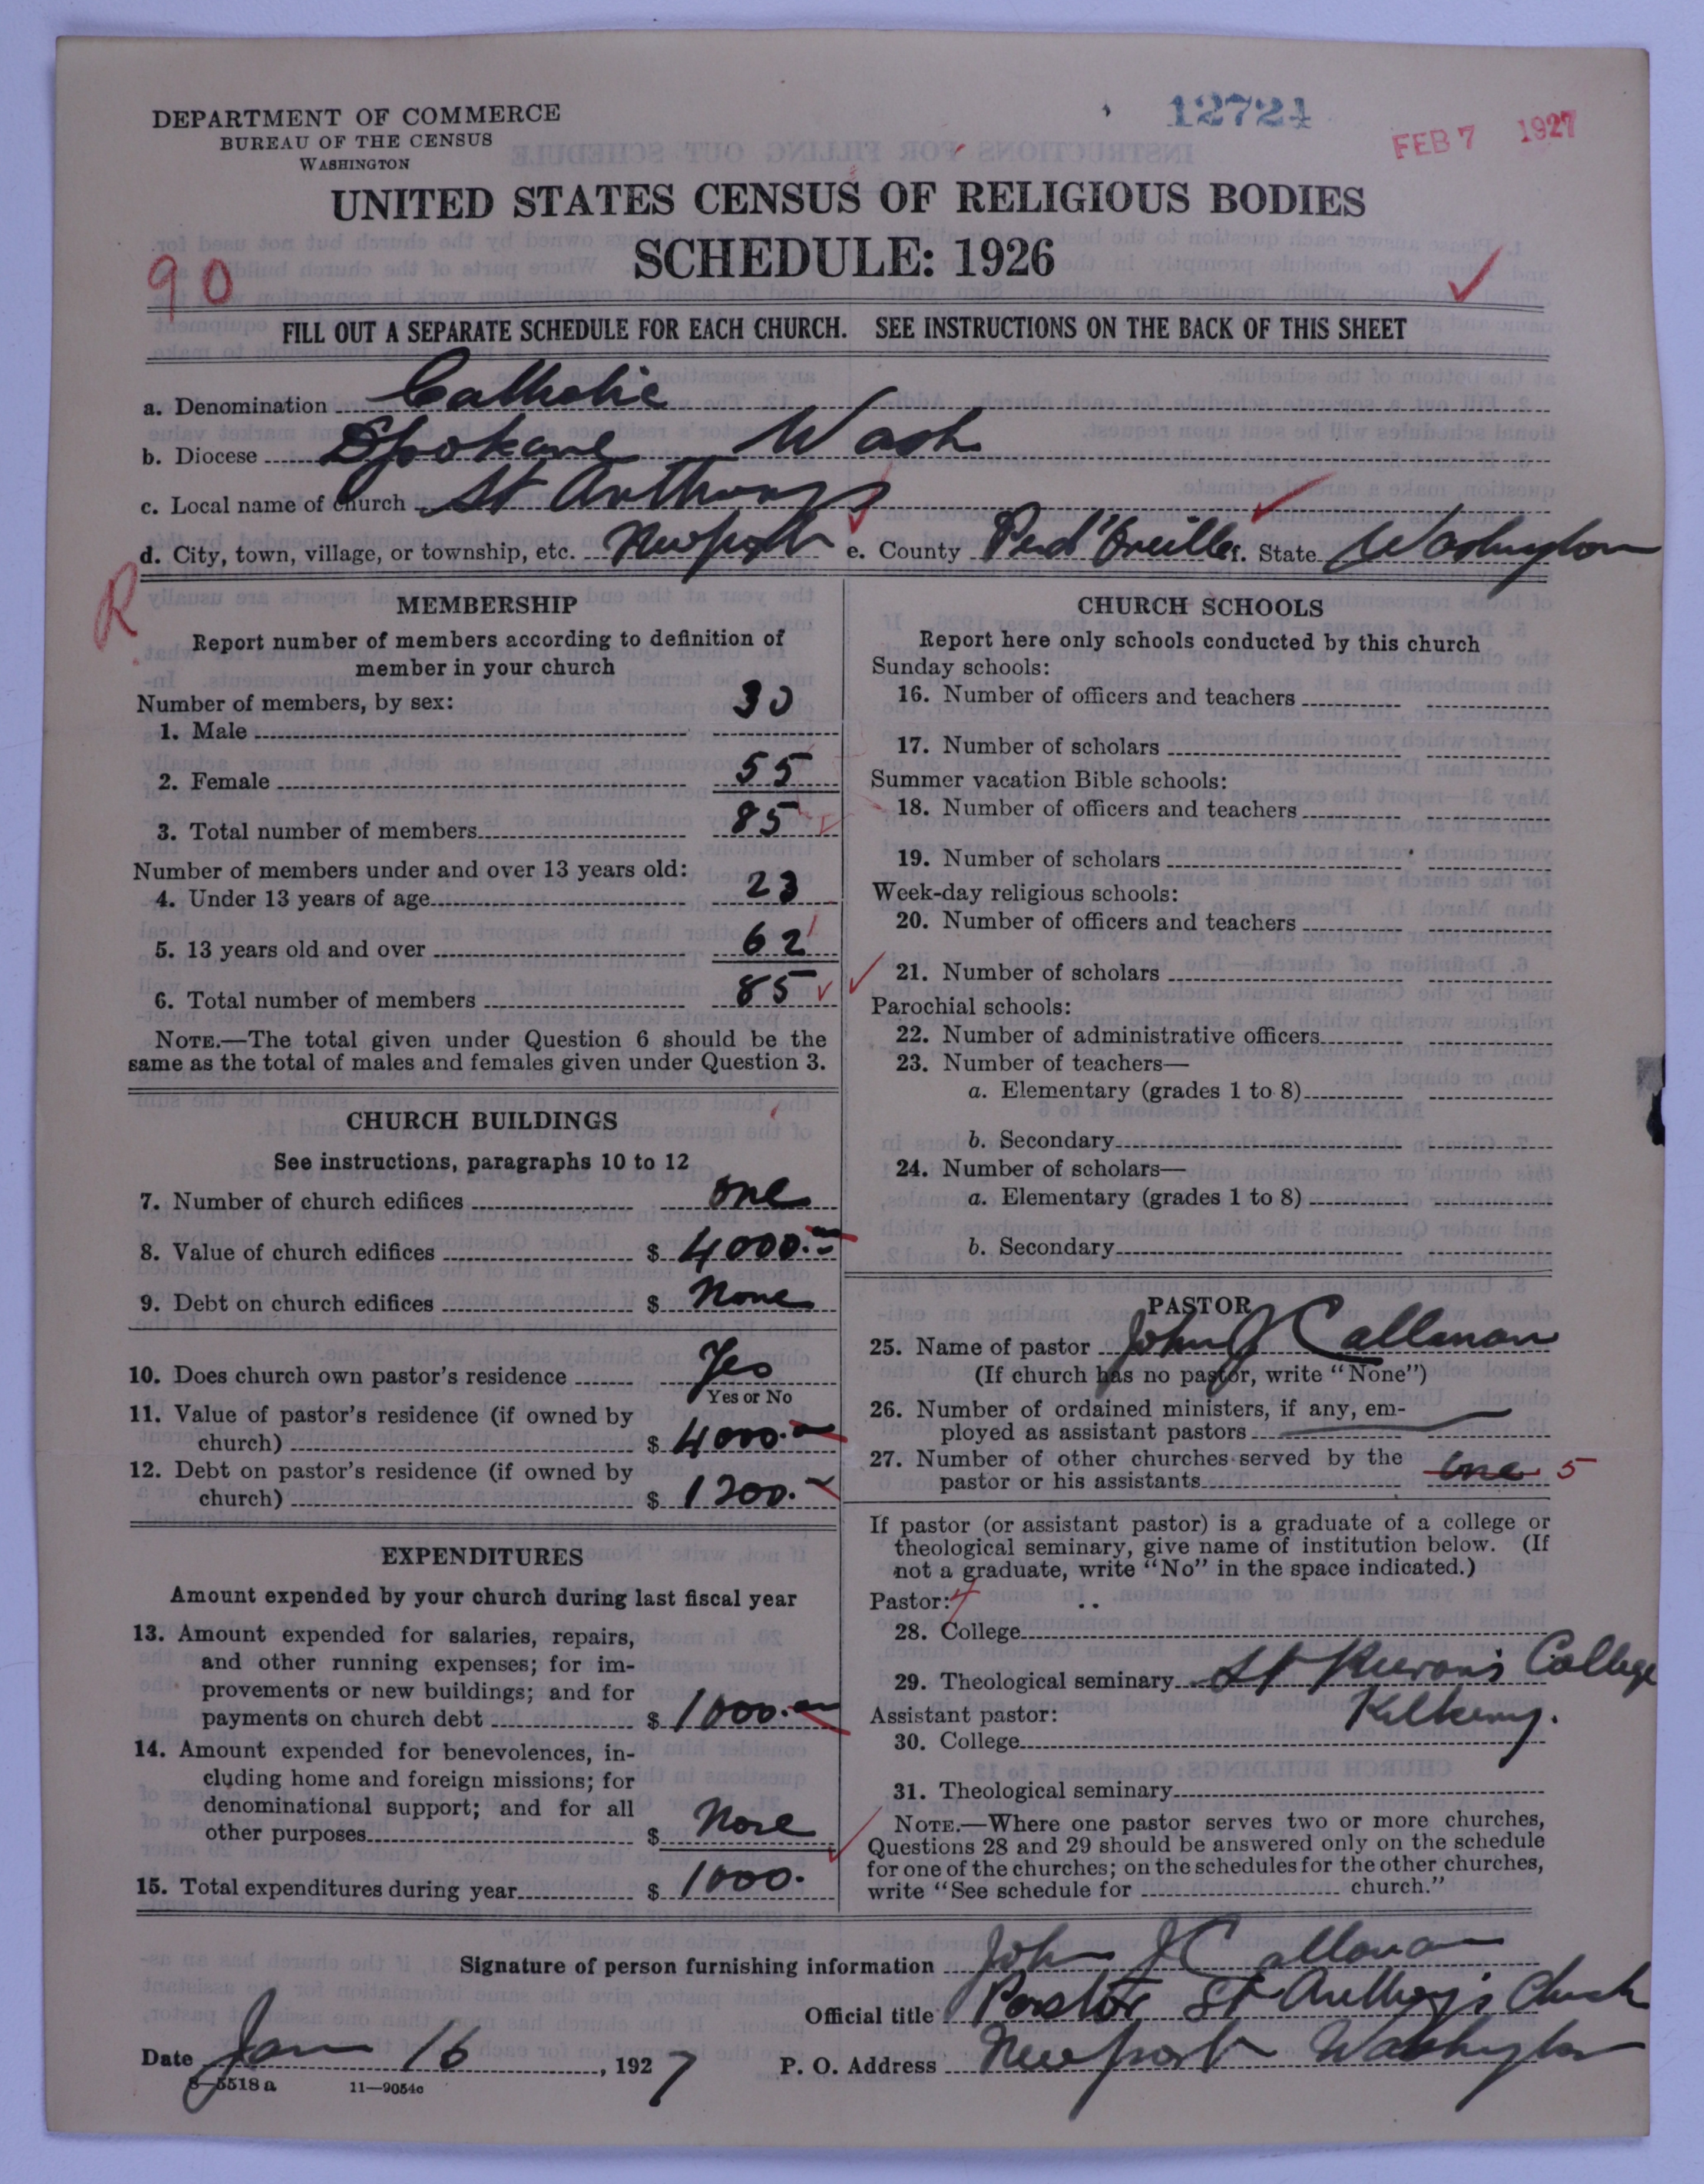 DEPARTMENT OF COMMERCE
BUREAU OF THE CENSUS
WASHINGTON
12724
FEB 7 1927
UNITED STATES CENSUS OF RELIGIOUS BODIES
SCHEDULE: 1926
90
FILL OUT A SEPARATE SCHEDULE FOR EACH CHURCH. SEE INSTRUCTIONS ON THE BACK OF THIS SHEET
a. Denomination Catholic
b. Diocese Spokane Wash
c. Local name of church St Anthonys
d. City, town, village, or township, etc. Newport e. County Pend'Oreille f. State Washington
R
MEMBERSHIP
Report number of members according to definition of
member in your church
Number of members, by sex:
1. Male 30
2. Female 55
3. Total number of members 85
Number of members under and over 13 years old:
4. Under 13 years of age 23
5. 13 years old and over 62
6. Total number of members 85
NOTE.—The total given under Question 6 should be the
same as the total of males and females given under Question 3.
CHURCH BUILDINGS
See instructions, paragraphs 10 to 12
7. Number of church edifices one
8. Value of church edifices $ 4000.
9. Debt on church edifices $ None
10. Does church own pastor's residence Yes
Yes or No
11. Value of pastor's residence (if owned by
church) $ 4000.
12. Debt on pastor's residence (if owned by
church) $ 1200.
EXPENDITURES
Amount expended by your church during last fiscal year
13. Amount expended for salaries, repairs,
and other running expenses; for im-
provements or new buildings; and for
payments on church debt $ 1000.
14. Amount expended for benevolences, in-
cluding home and foreign missions; for
denominational support; and for all
other purposes $ None
15. Total expenditures during year $ 1000.
CHURCH SCHOOLS
Report here only schools conducted by this church
Sunday schools:
16. Number of officers and teachers
17. Number of scholars
Summer vacation Bible schools:
18. Number of officers and teachers
19. Number of scholars
Week-day religious schools:
20. Number of officers and teachers
21. Number of scholars
Parochial schools:
22. Number of administrative officers
23. Number of teachers—
a. Elementary (grades 1 to 8)
b. Secondary
24. Number of scholars—
a. Elementary (grades 1 to 8)
b. Secondary
PASTOR
25. Name of pastor John J Callanan
(If church has no pastor, write "None")
26. Number of ordained ministers, if any, em-
ployed as assistant pastors
27. Number of other churches served by the
pastor or his assistants one 5
If pastor (or assistant pastor) is a graduate of a college or
theological seminary, give name of institution below. (If
not a graduate, write "No" in the space indicated.)
Pastor:
28. College
29. Theological seminary St Kieran's College
Kilkenny.
Assistant pastor:
30. College
31. Theological seminary
NOTE.—Where one pastor serves two or more churches,
Questions 28 and 29 should be answered only on the schedule
for one of the churches; on the schedules for the other churches,
write "See schedule for church."
Signature of person furnishing information John J Callanan
Official title Pastor St Anthony's Church
Date Jan 16, 1927 P. O. Address Newport Washington
8—5518 a 11—9054c